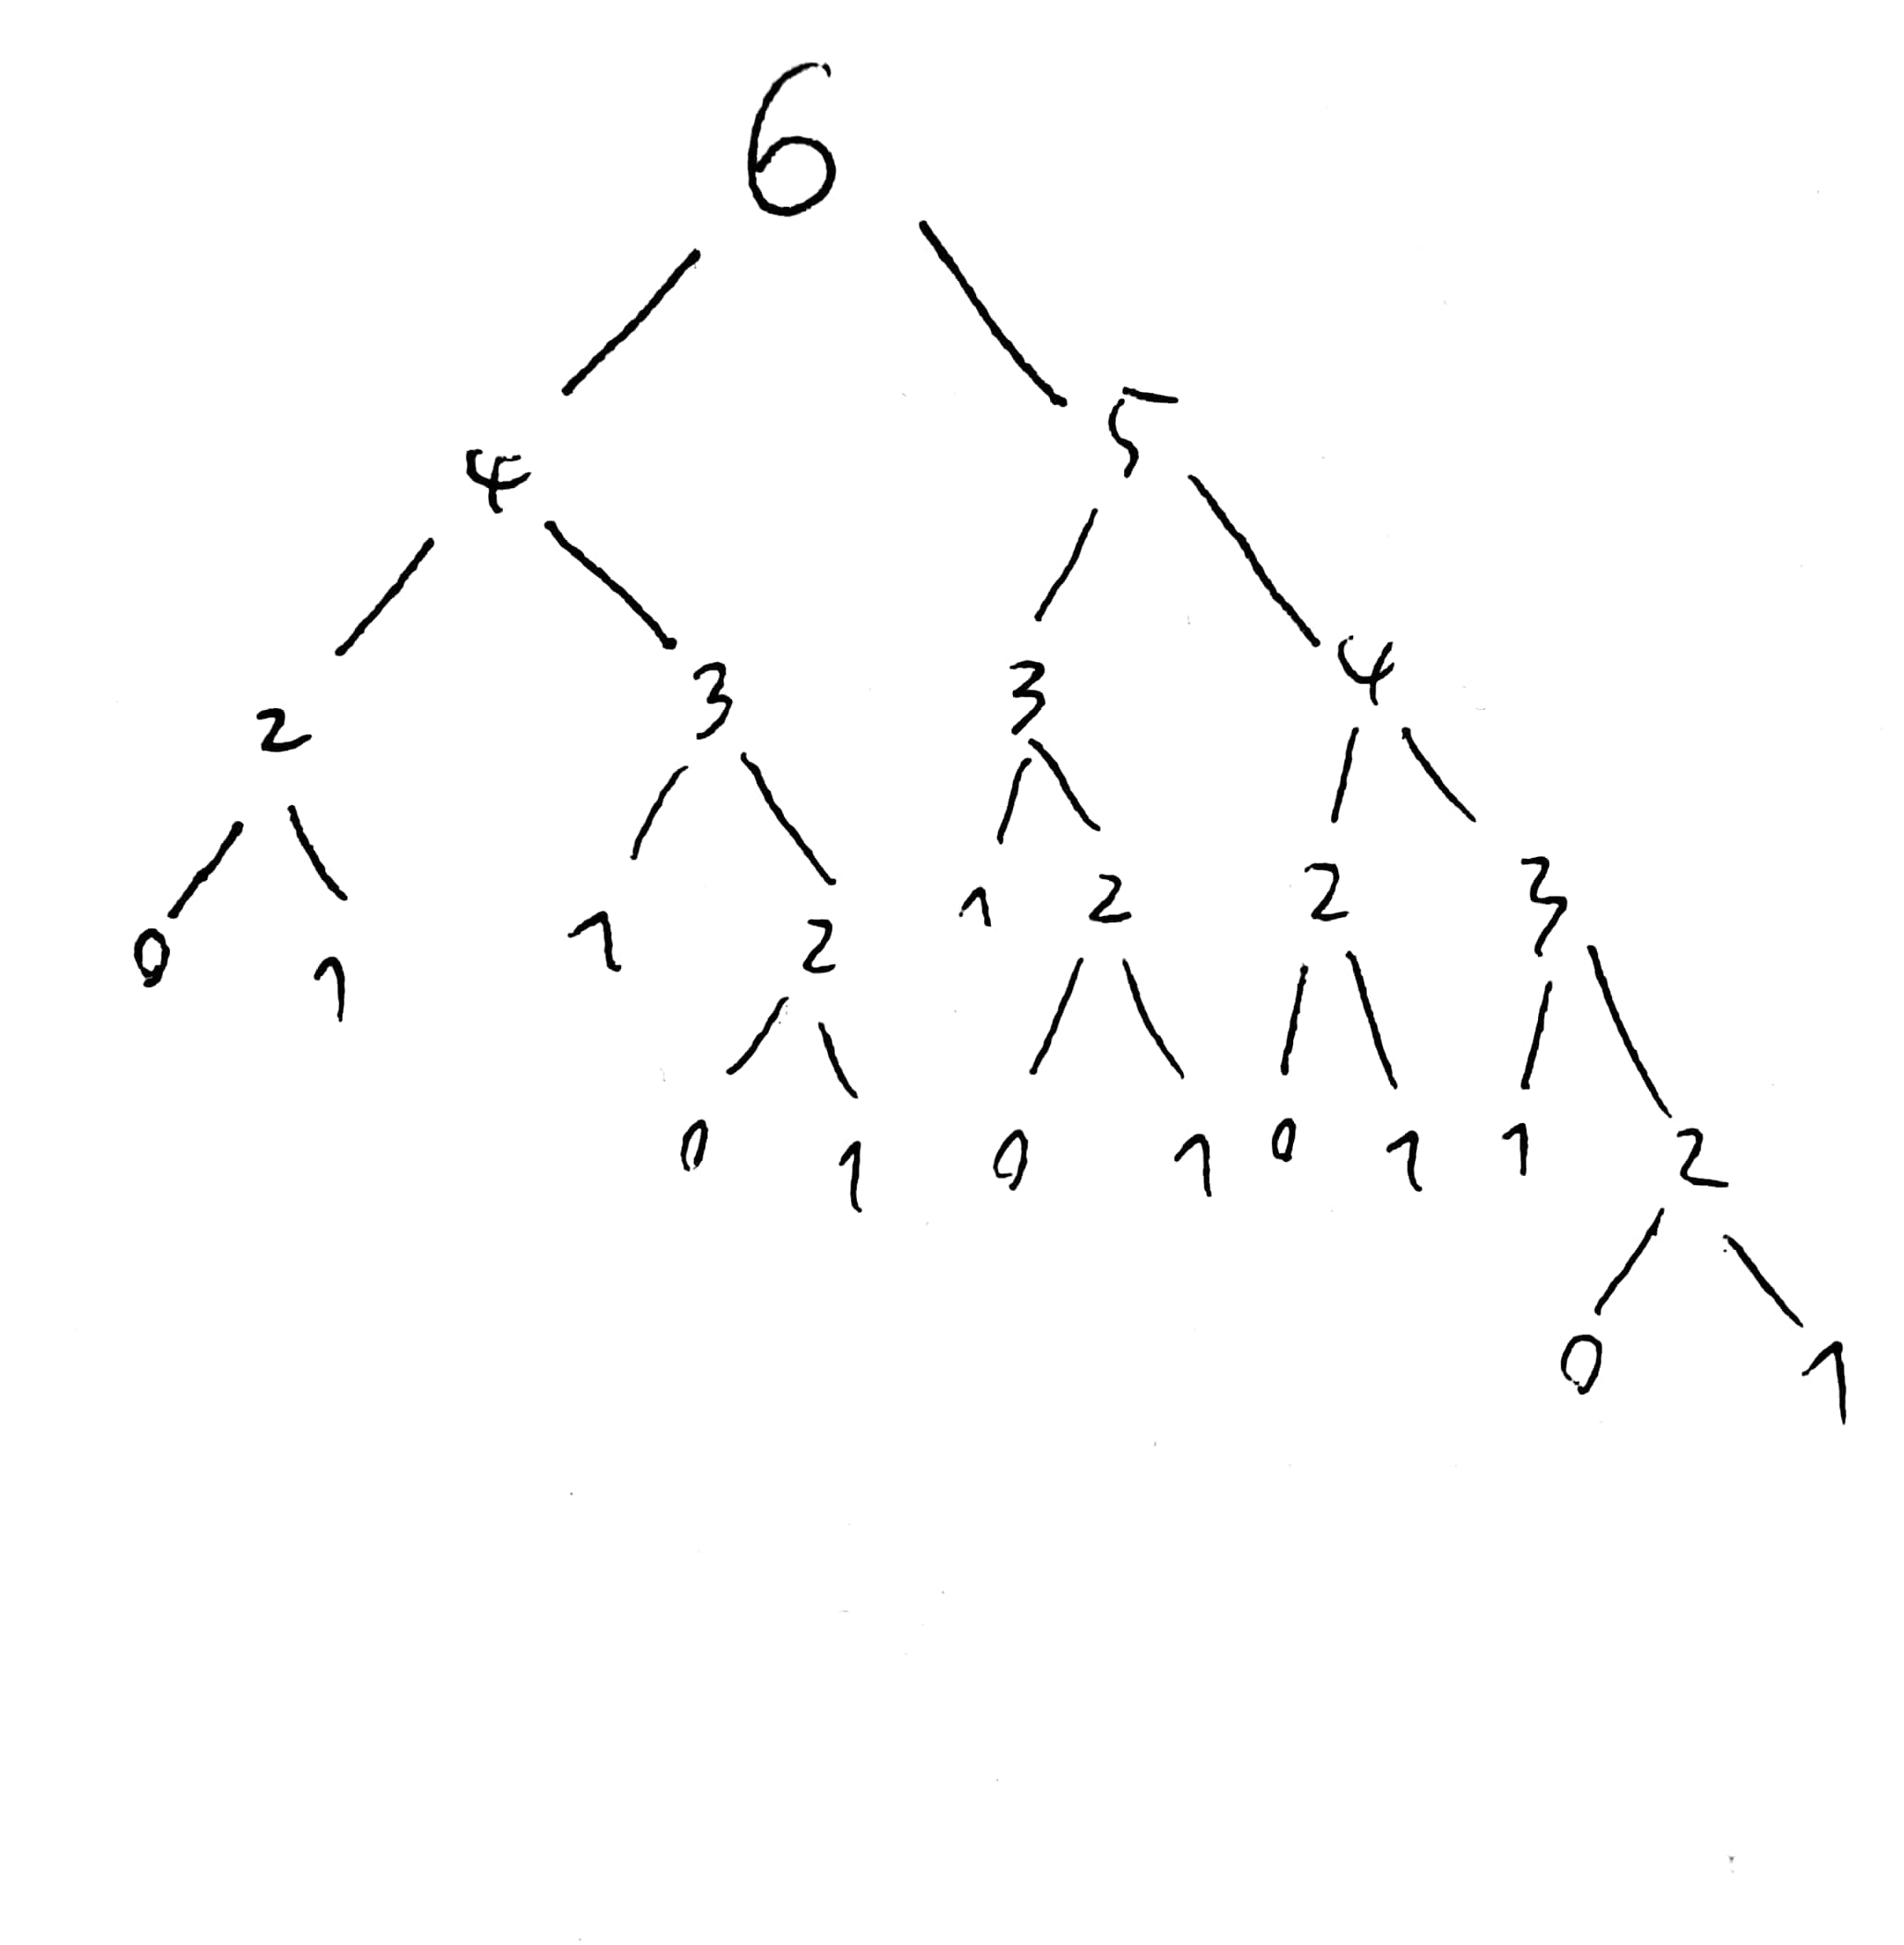 6
4 5
2 3 3 4
0 1 1 2 1 2 2 3
0 1 0 1 0 1 1 2
0 1